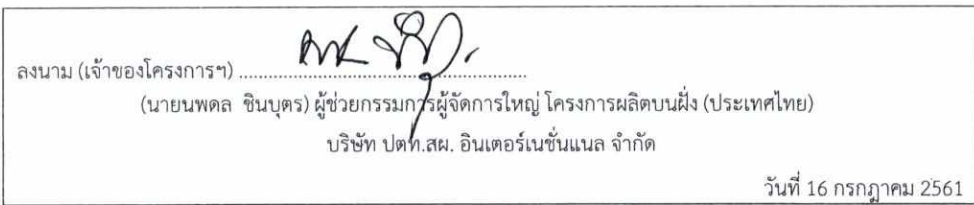 ลงนาม (เจ้าของโครงการฯ) ........................................................
(นายนพดล ชินบุตร) ผู้ช่วยกรรมการผู้จัดการใหญ่ โครงการผลิตบนฝั่ง (ประเทศไทย)
บริษัท ปตท.สผ. อินเตอร์เนชั่นแนล จำกัด
วันที่ 16 กรกฎาคม 2561